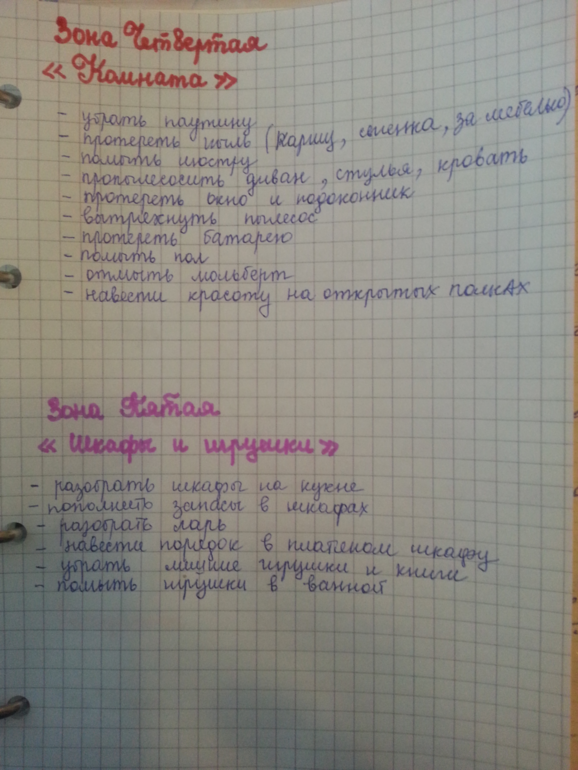 Зона Четвертая
« Комната »
- убрать паутину
- протереть пыль (карниз, стенка, за мебелью)
- помыть люстру
- пропылесосить диван, стулья, кровать
- протереть окно и подоконник
- вытряхнуть пылесос
- протереть батарею
- помыть пол
- отмыть мольберт
- навести красоту на открытых полкАх
Зона Пятая
« Шкафы и игрушки »
- разобрать шкафы на кухне
- пополнить запасы в шкафах
- разобрать ларь
- навести порядок в платяном шкафу
- убрать лишние игрушки и книги
- помыть игрушки в ванной